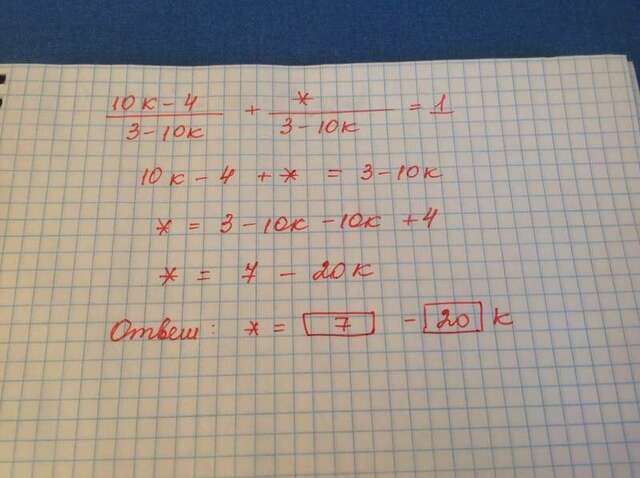 10к-4 / 3-10к + * / 3-10к = 1
10к-4 + * = 3-10к
* = 3-10к-10к+4
* = 7-20к
Ответ: * = 7 - 20 к